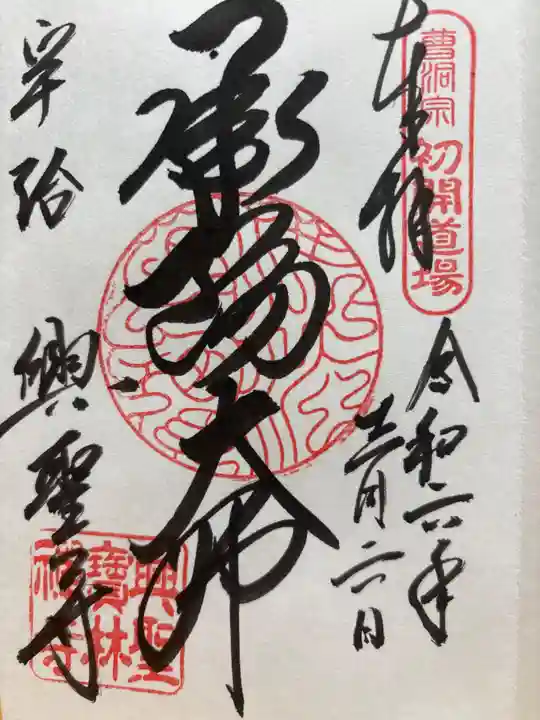 曹洞宗 初開道場
奉拝
令和六年
十二月六日
承陽大師
宇治
興聖寺
興聖
寶林
禅寺